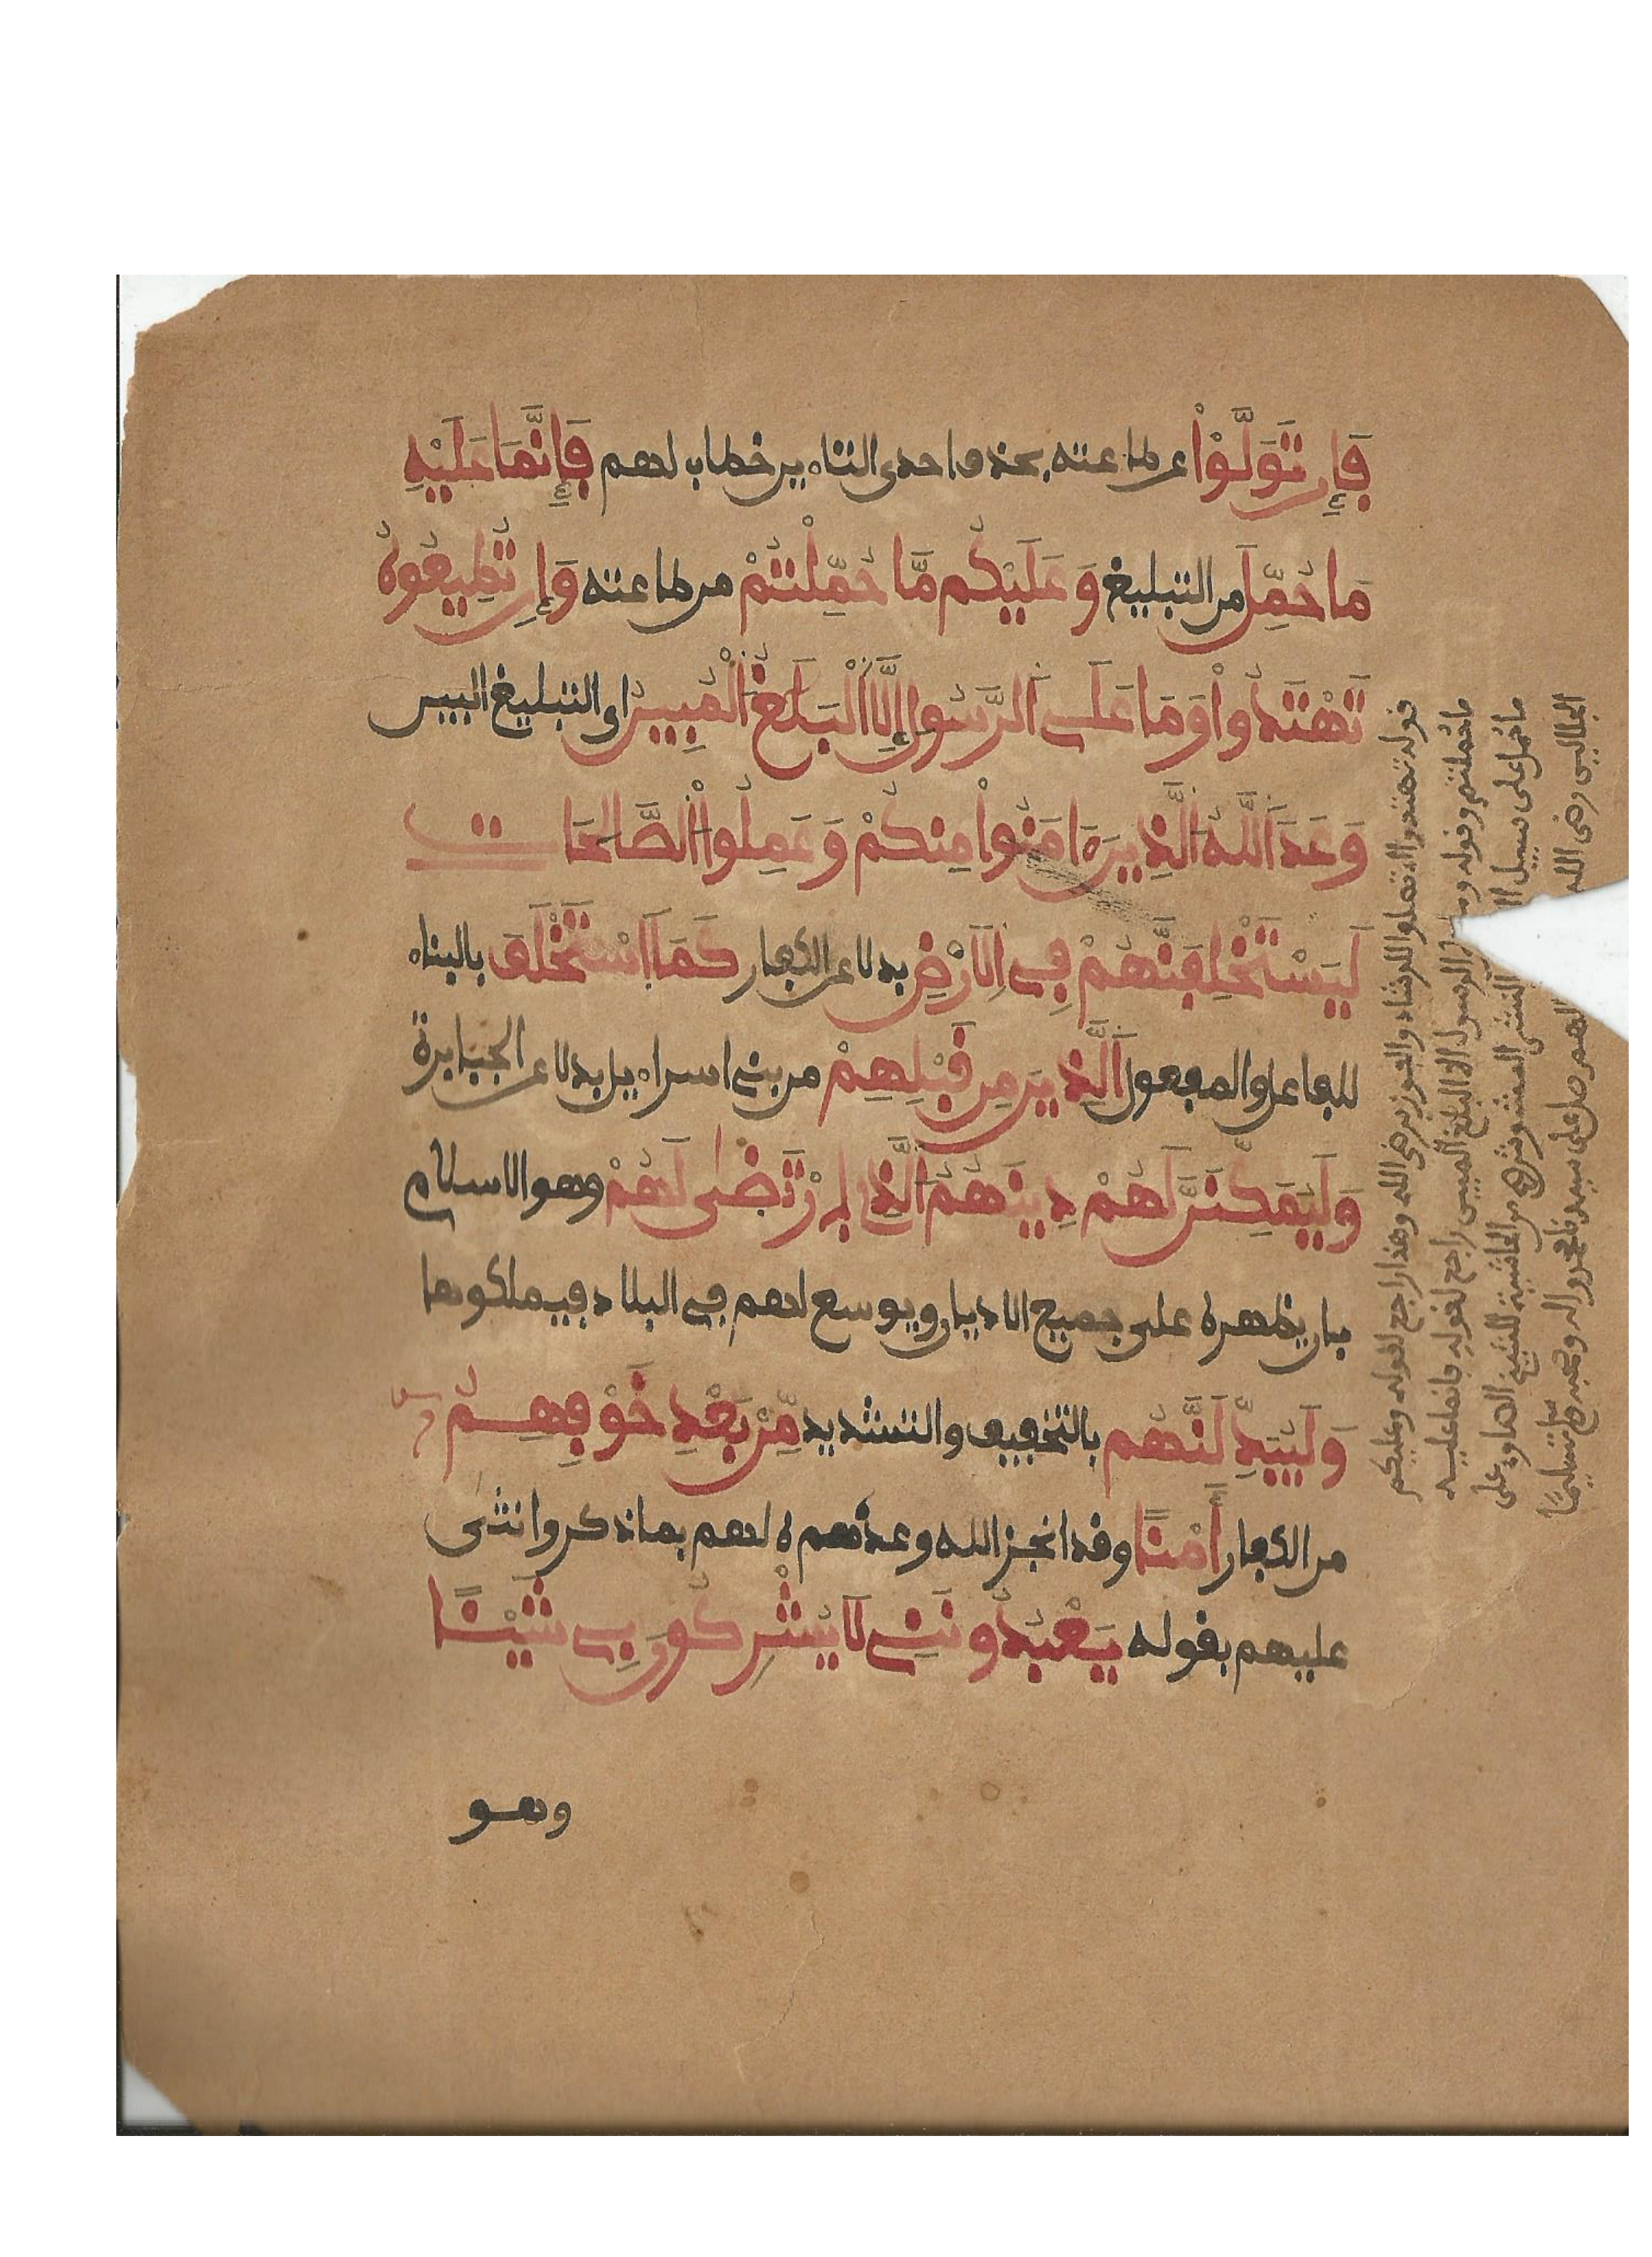 فَإِن تَوَلَّوْاْ عن طاعته بحذف احدى التاءين خطاب لهم فَإِنَّمَا عَلَيْهِ
مَا حُمِّلَ من التبليغ وَعَلَيْكُم مَّا حُمِّلْتُمْ من طاعته وَإِن تُطِيعُوهُ
تَهْتَدُواْ وَمَا عَلَى اَلرَّسُولِ إِلَّا اَلْبَلَٰغُ اُلْمُبِينُ اى التبليغ البين
وَعَدَ اَللَّهُ اُلَّذِينَ ءَامَنُواْ مِنكُمْ وَعَمِلُواْ اُلصَّالِحَاتِ
لَيَسْتَخْلِفَنَّهُمْ فِى اِلَارْضِ بدلا عن الكفار كَمَا اَسْتَخْلَفَ بالبناء
للفاعل والمفعول اَلَّذِينَ مِن قَبْلِهِمْ من بنى اسراءيل بدلا عن الجبابرة
وَلَيُمَكِّنَنَّ لَهُمْ دِينَهُمُ اُلَّذِى اِرْتَضَىٰ لَهُمْ وهو الاسلام
بان يظهره على جميع الاديان ويوسع لهم فى البلاد فيملكوها
وَلَيُبَدِّلَنَّهُم بالتخفيف والتشديد مِّنْ بَعْدِ خَوْفِهِمُ
من الكفار أَمْناً وقد انجز الله وعدهم ه لهم بما ذكر واثنى
عليهم بقوله يَعْبُدُونَنِى لَا يُشْرِكُونَ بِى شَيْئاً
وهو
قوله تهتدوا اى تصلوا للرشاد والفوز برضى الله وهذا راجع لقوله وعليكم
ما حملتم وقوله وما الرسول الا البلغ المبين راجع لقوله فانما عليه
ما حمل على سبيل النشر المشوش من الحاشية للشيخ الصاوى على
الجلالين رضى الله اللهم صل على سيدنا محمد واله وصحبه وسلم تسليما